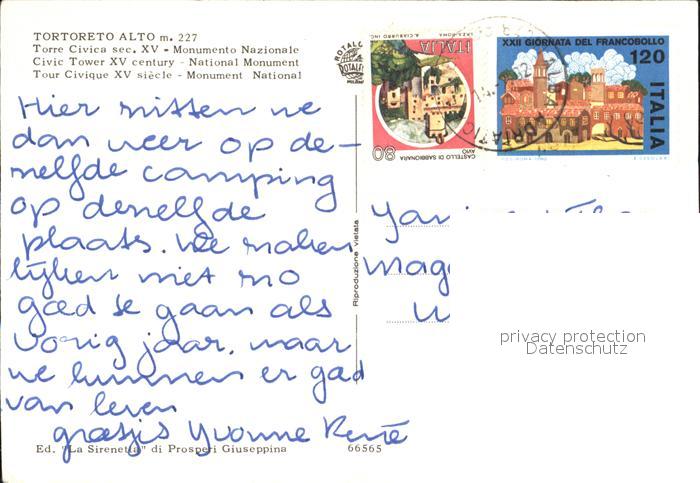 TORTORETO ALTO m. 227
Torre Civica sec. XV - Monumento Nazionale
Civic Tower XV century - National Monument
Tour Civique XV siècle - Monument National
ROTALCOLOR
ROTALFOTO
MILANO
ITALIA
80
CASTELLO DI SABBIONARA
AVIO
XXII GIORNATA DEL FRANCOBOLLO
120
ITALIA
Hier zitten we
dan weer op de-
zelfde camping
op dezelfde
plaats. We zaken
lijken niet zo
goed te gaan als
vorig jaar, maar
we kunnen er goed
van leven
groetjes Yvonne René
Riproduzione vietata
privacy protection
Datenschutz
Ed. "La Sirenetta" di Prosperi Giuseppina
66565